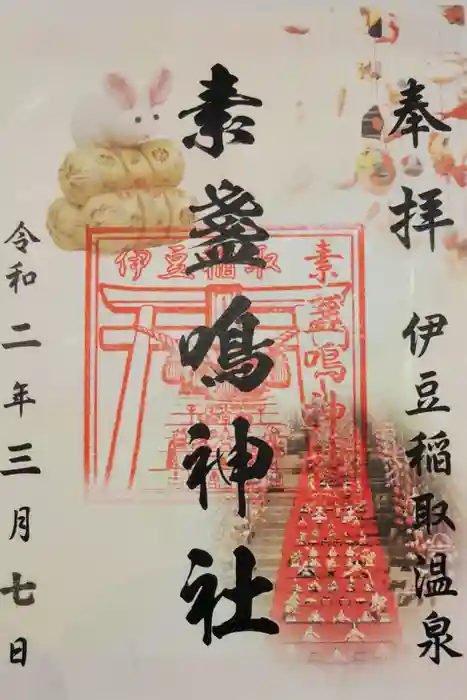 奉拝 伊豆稲取温泉
素盞鳴神社
伊豆稲取
素盞鳴神社
令和二年三月七日